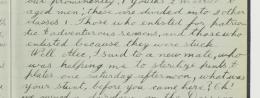 aged men; these are divided into 2 other
classes: Those who enlisted for patrio-
tic & adventurous reasons, and those who
enlisted because they were stuck.
Well Alec, I said to a new mate, who
was helping me to sterilize
plates one Saturday afternoon, what was
your stunt, before you came here? Oh!